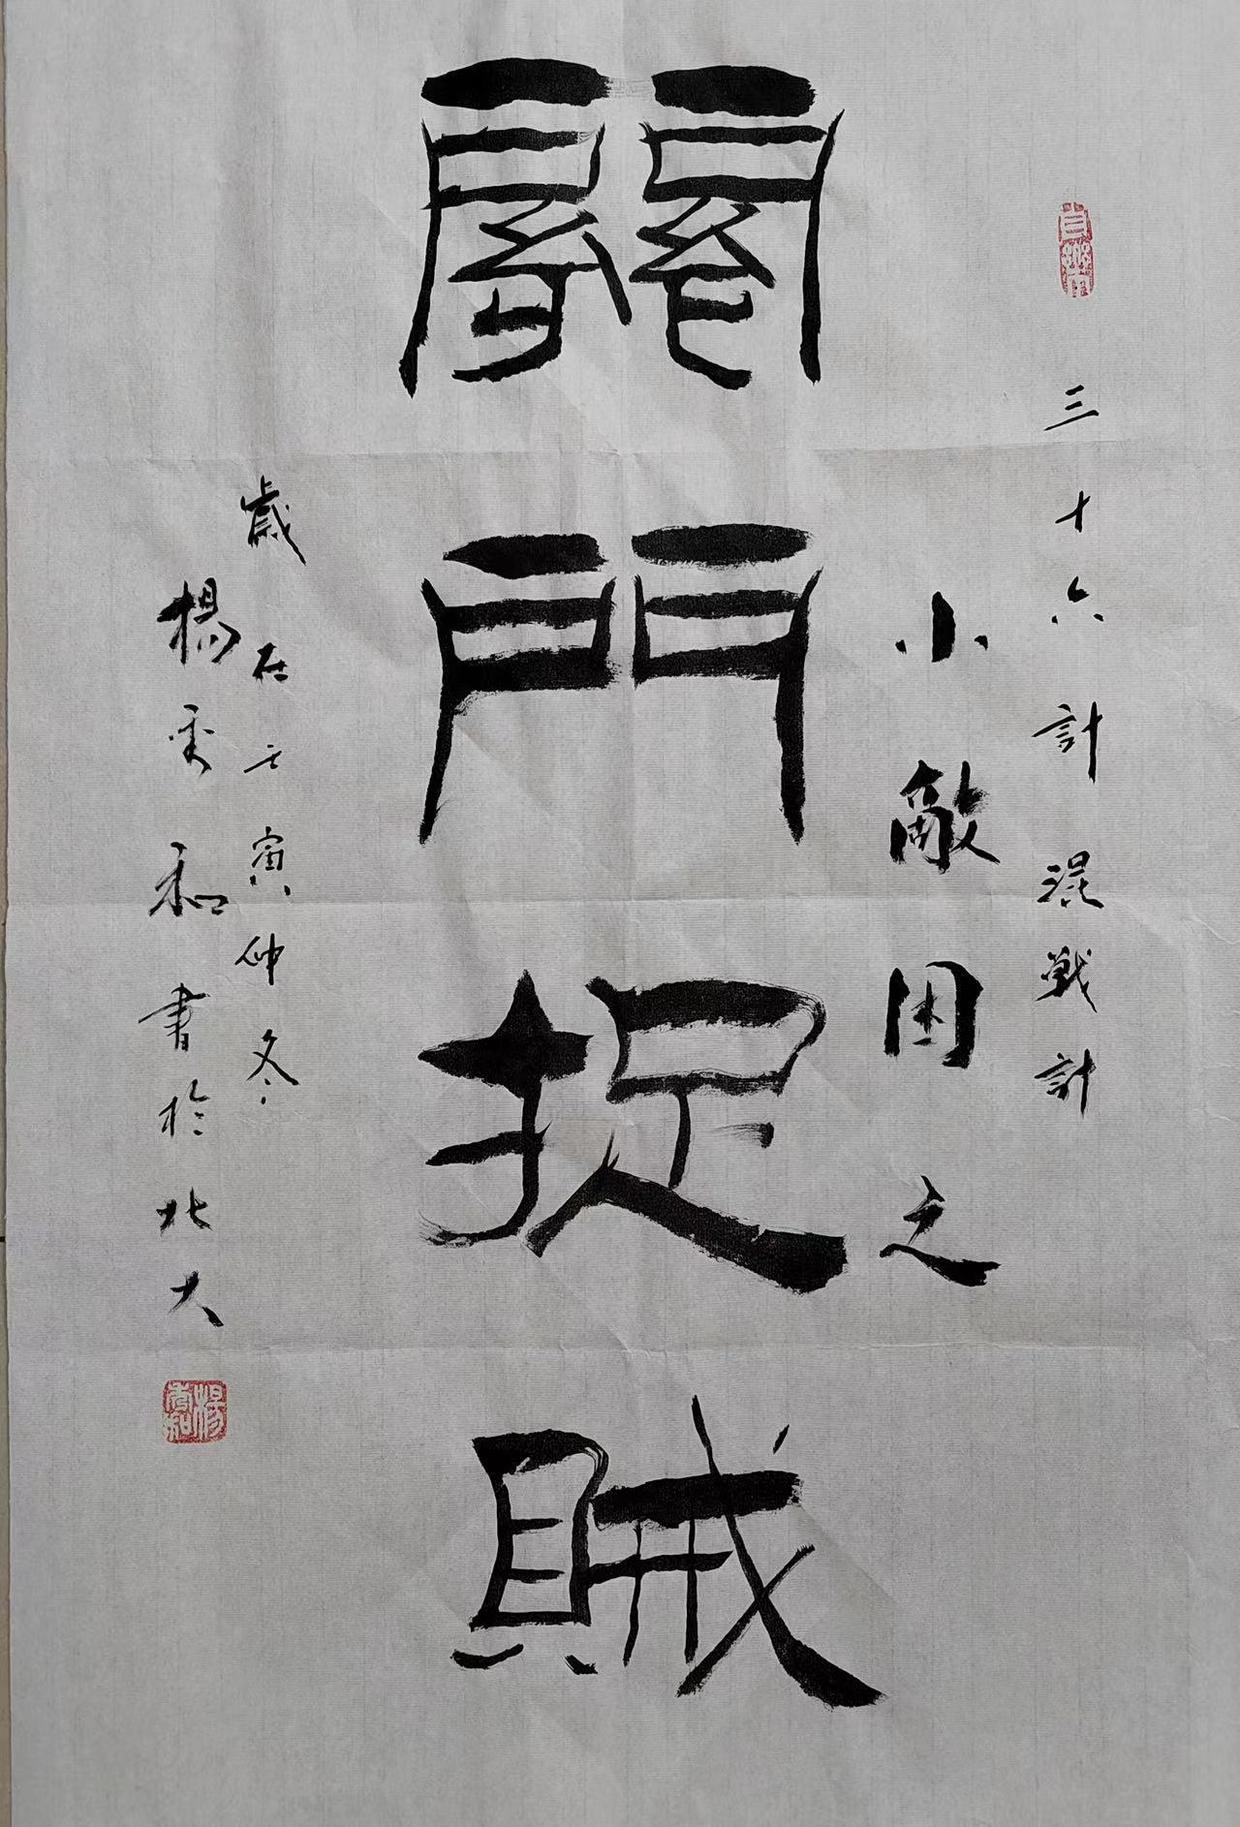 自樂
三十六計混戰計
小敵困之
關門捉賊
歲在壬寅仲冬
楊秀和書於北大